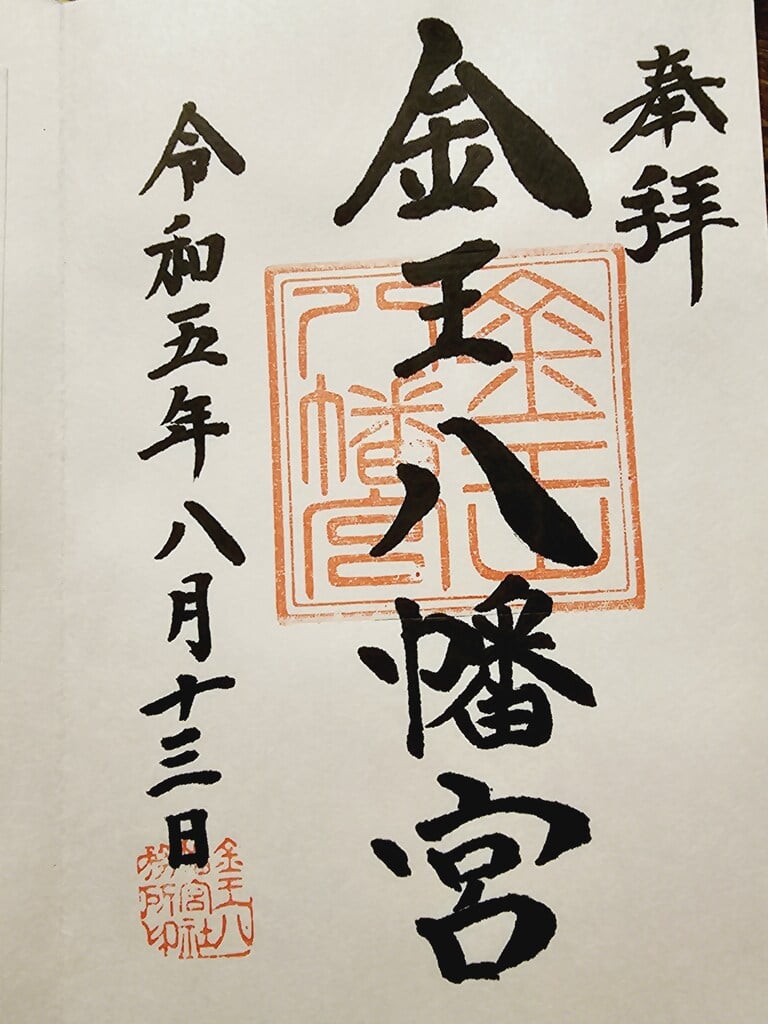 奉拝
金王八幡宮
令和五年八月十三日
金王
八幡宮
金王八
幡宮社
務所印